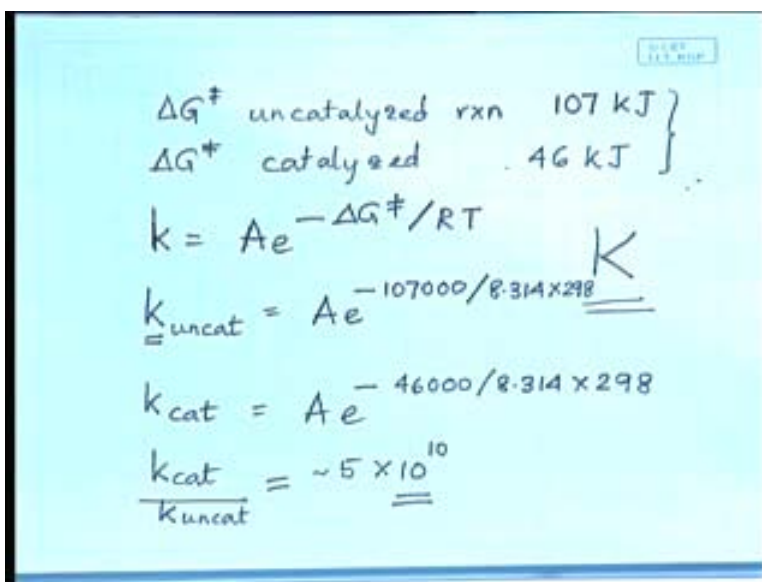 ΔG‡ uncatalyzed rxn 107 kJ
ΔG‡ catalyzed . 46 kJ
k = Ae^-ΔG‡/RT
K
k uncat = Ae^-107000/8.314×298
k cat = Ae^-46000/8.314×298
kcat/kuncat = ~5 × 10^10